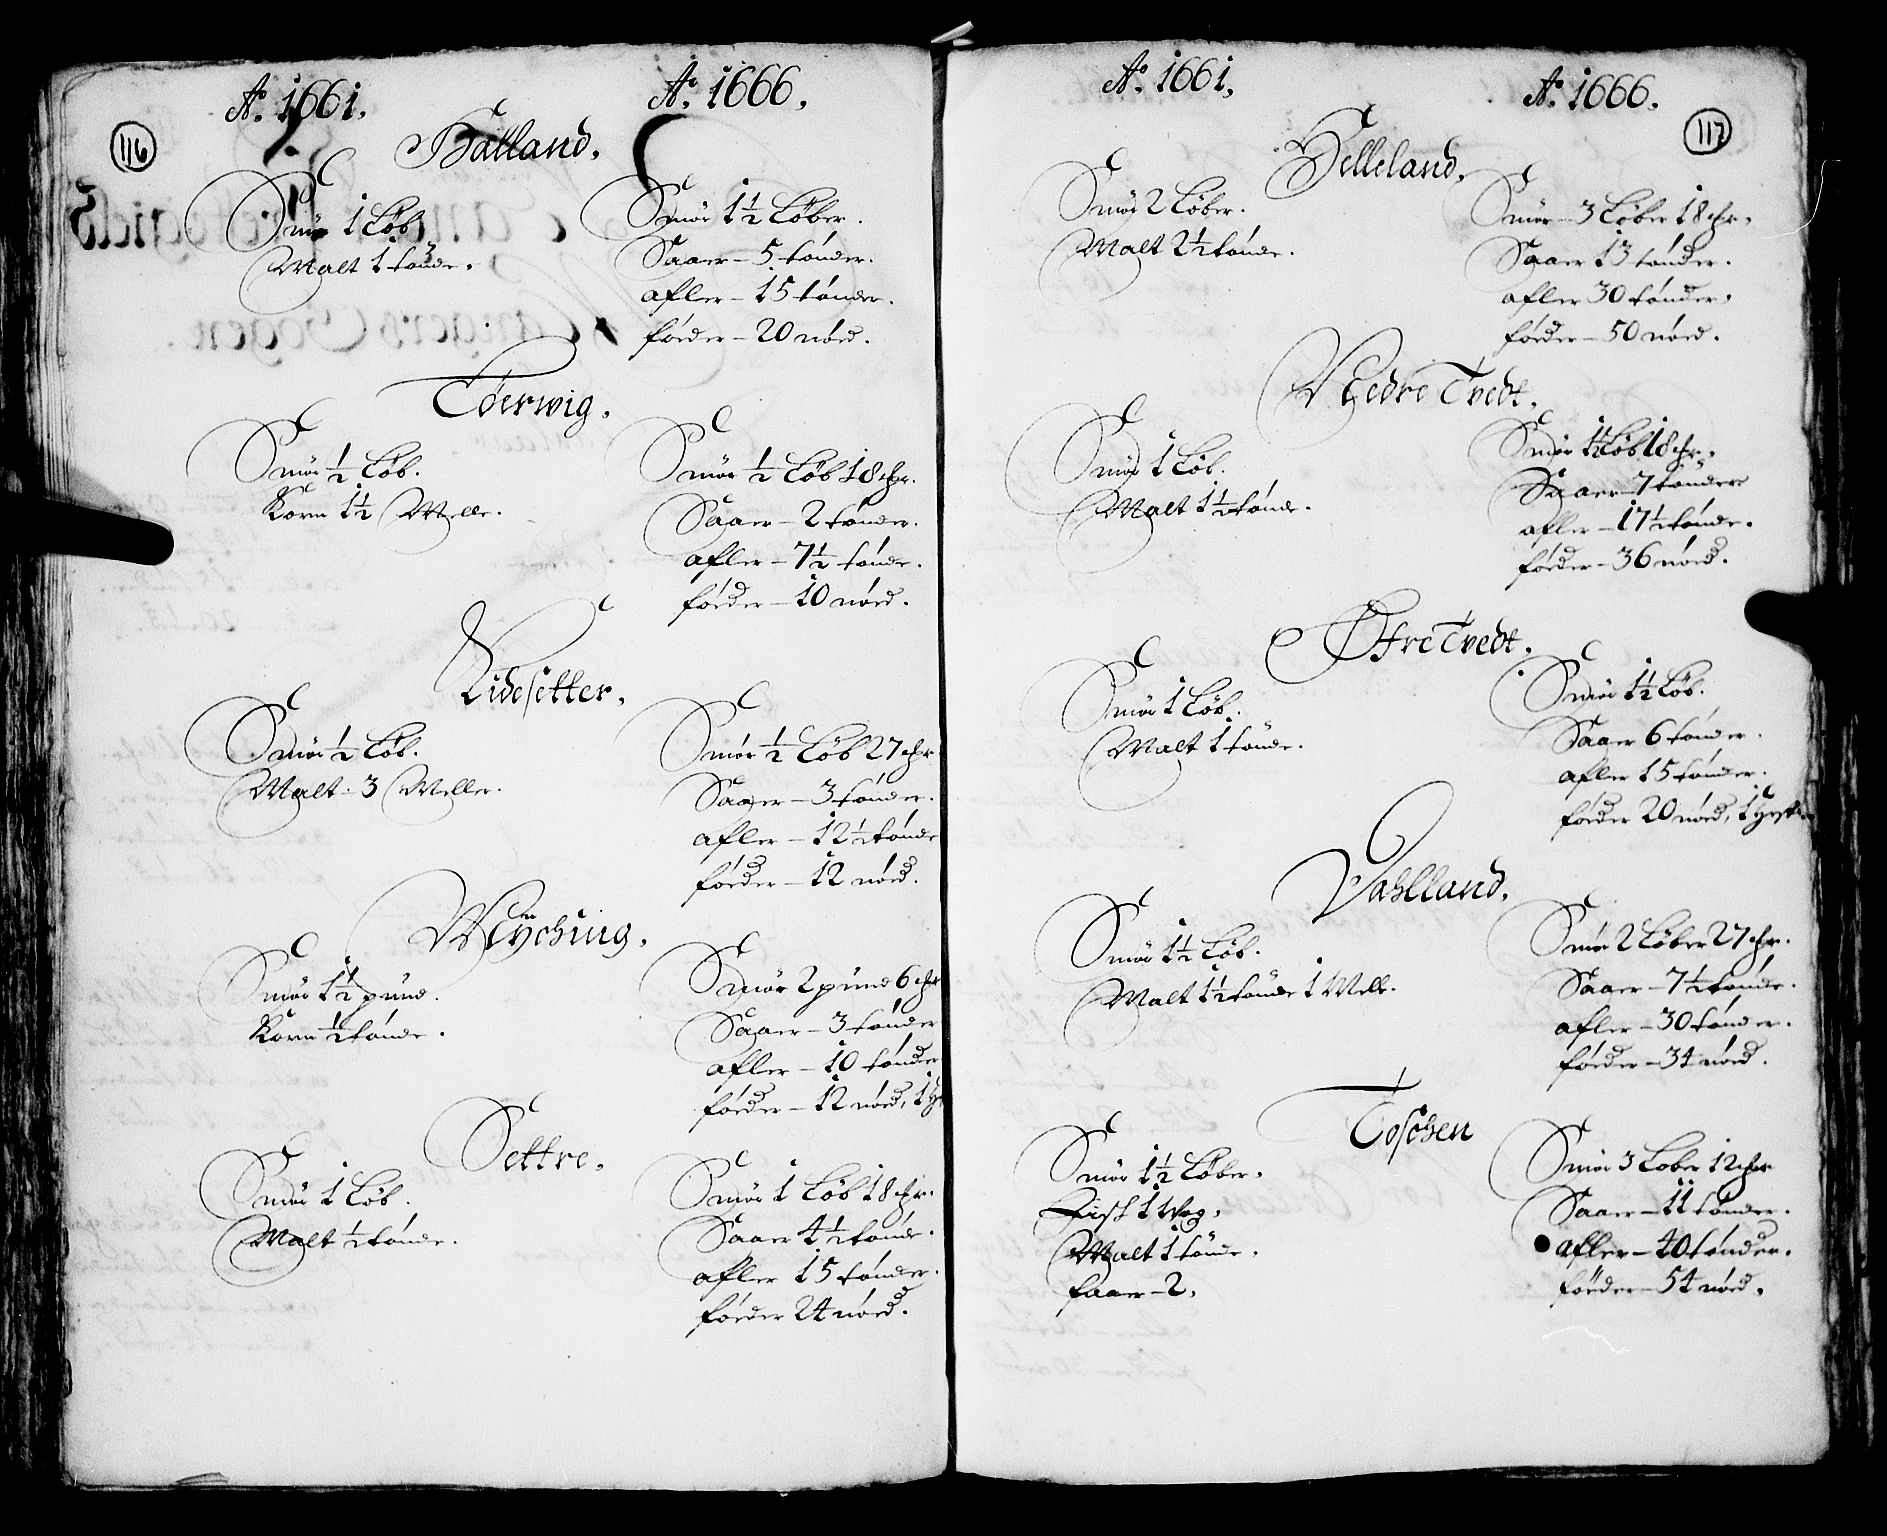 116
Ao. 1661.
Ao. 1666.
Hatland.
Smör 1 Løb
Malt 1 tønde.
Smör 1½ Løber.
Saaer - 5 tønder.
afler - 15 tønder.
føeder - 20 nöed.
Törwig.
Smör ½ Løb.
Korn 1½ Melle.
Smör ½ Løb 18 chr.
Saaer - 2 tønder.
afler - 7½ tønde.
føeder - 10 nöed.
Lidesetter.
Smör ½ Løb.
Malt - 3 Meller.
Smör ½ Løb 27 chr
Saaer - 3 tønder.
afler - 12½ tønde
föeder - 12 nöed.
Myching.
Smör 1½ pund.
Korn ½ tønde.
Smör 2 pund 6 chr
Saaer - 3 tønder
afler - 10 tønder
föeder - 12 nöed, 1
Settre.
Smör 1 Løb.
Malt ½ tønde.
Smör 1 Løb 18 chr.
Saaer 4½ tønde.
afler 15 tønder.
föeder 24 nöed.
117
Ao. 1661.
Ao. 1666.
Helleland.
Smör 2 Løber.
Malt 2½ tønde.
Smör - 3 Løber 18 chr.
Saaer 13 tønder.
afler 30 tønder.
föeder - 50 nöed.
Nedre Tvedt.
Smör 1 Løb.
Malt 1½ tønde.
Smör 1½ Løb 18 chr.
Saaer - 7 tønder
afler - 17½ tønde.
föeder - 36 nöed.
Øfre Tvedt.
Smör 1 Løb.
Malt 1 tønde.
Smör 1½ Løb.
Saaer 6 tønder.
afler 15 tønder.
föeder 20 nöed, 1
Vahlland.
Smör 1½ Løb.
Malt 1½ tønde 1 Melle.
Smör 2 Løber 27 chr.
Saaer - 7½ tønde.
afler - 30 tønder.
föeder - 34 nöed.
Toschen
Smör 1½ Løber.
Fisk 1 Wog.
Malt 1 tønde.
faaer - 2.
Smör 3 Løber 12 chr
Saaer - 11 tønder.
afler - 40 tønder.
föeder - 54 nöed.